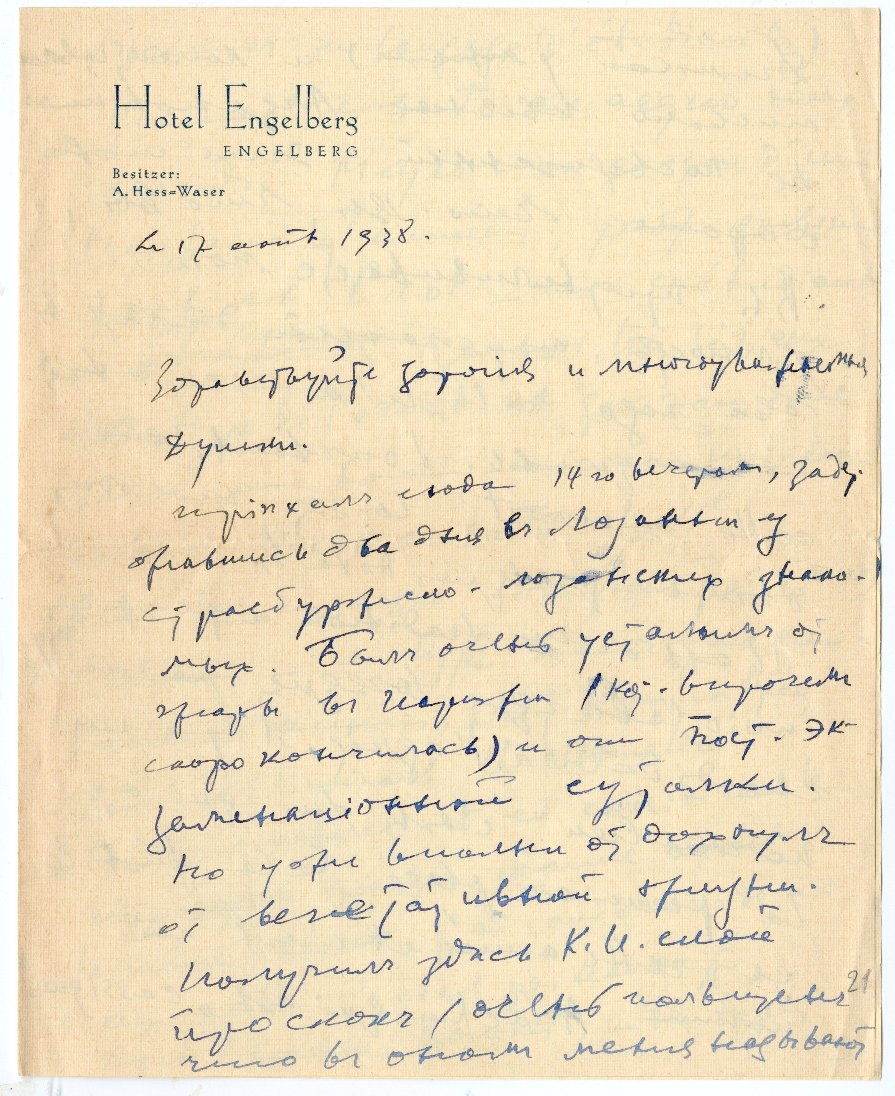 Hotel Engelberg
ENGELBERG
Besitzer:
A. Hess=Waser
Le 17 août 1938.
Здравствуйте дорогiя и многоуважаемыя
душки.
Прiѣхалъ сюда 14го вечеромъ, заде-
ржавшись два дня въ Лозаннѣ у
страсбуржско-лозанскихъ знако-
мыхъ. Былъ очень усталымъ от
жары въ Парижѣ (кот. впрочемъ
скоро кончилась) и от пост. эк-
заменаціонной сутолки.
Но уже вполнѣ отдохнулъ
от вегетативной жизни.
Получилъ здѣсь К. И. свой
проскокъ (очень польщенъ
что въ она меня называют
21